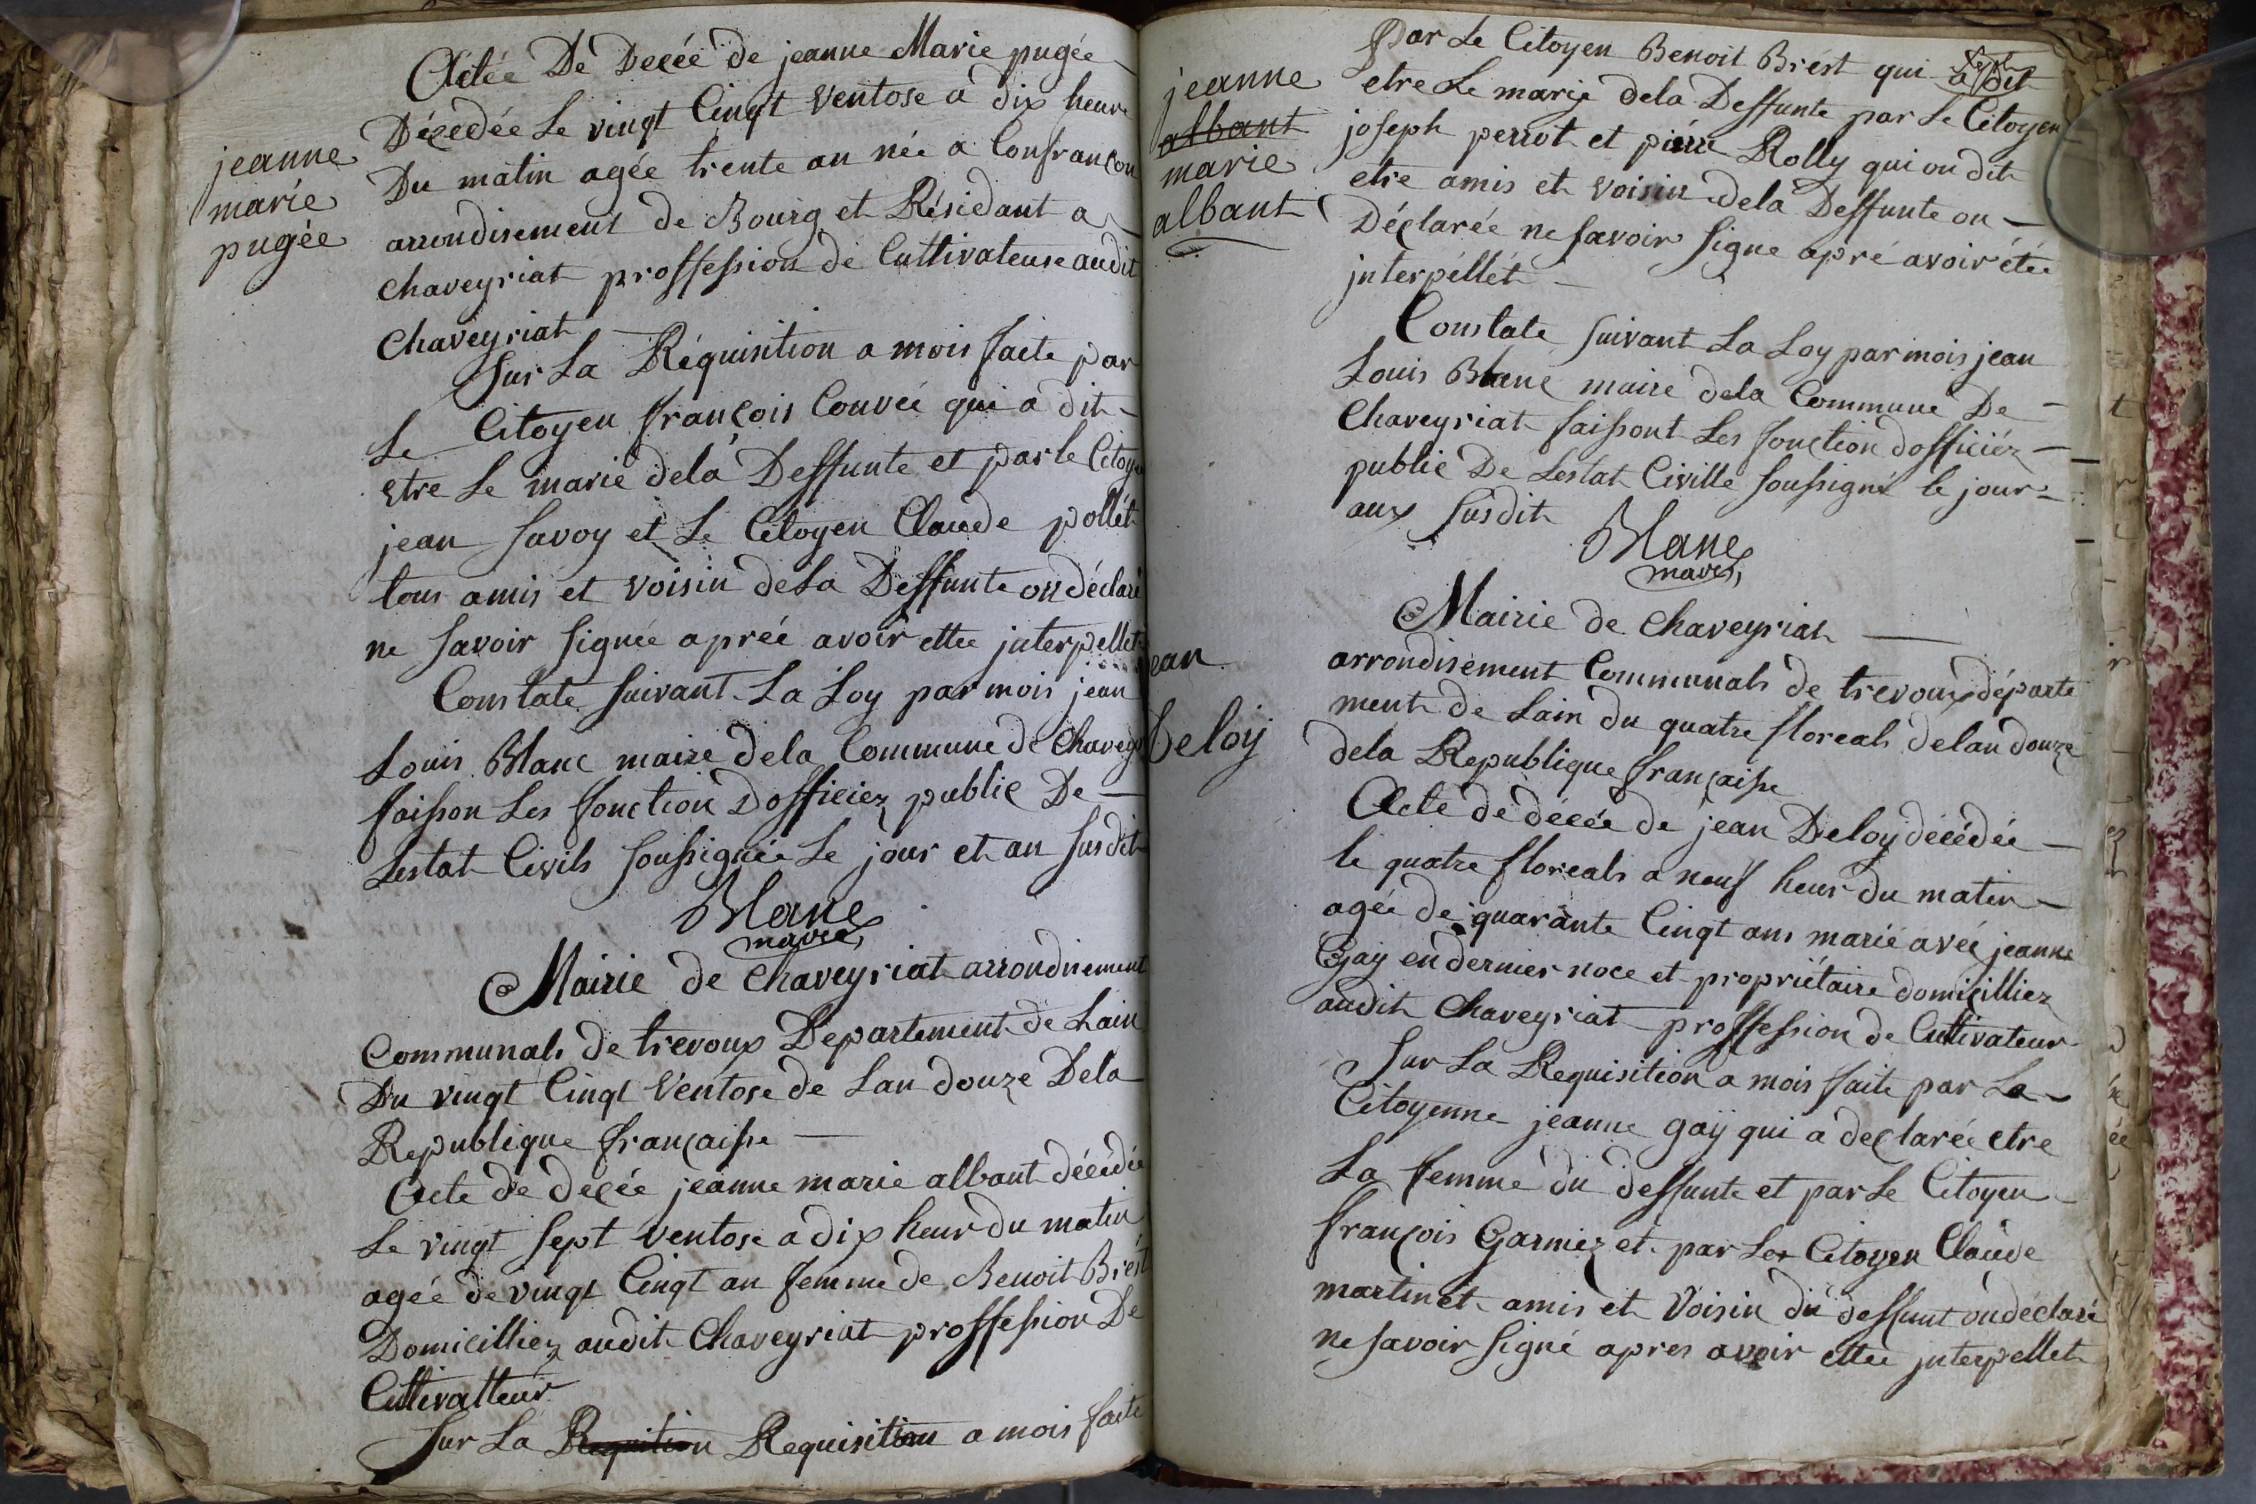 jeanne
marie
pugée
Actée De Decée de jeanne Marie pugée
Dézedée Le vingt Cinqt ventose a dix heure
Du matin agée trente an née a Confrançon
arrondisement de Bourg et Résidant a
chaveyriat proffession de Cultivateuse audit
chaveyriat
Sur La Réquisition a mois faite par
Le Citoyen françois Couvée qui a dit
etre Le marie dela Deffunte et par le Citoye
jean Savoy et Le Citoyen Claude pollét
tous amis et voisin dela Deffunte on déclaré
ne Savoir Signée aprée avoir ettee jnterpellet
Constate Suivant La Loy par mois jean
Louis Blanc maire dela Commune de Chavey
faisson Les fonction Dofficiez public De
Lestat Civils Soussignée Le jour et an Susdit
Blanc
maire
Mairie de Chaveyriat arrondisement
Communals de trevoux Departement de Lain
Du vingt Cinqt Ventose de Lan douze Dela
Republique française
Acte de decée jeanne marie albant décédée
Le vingt Sept ventose a dix heur du matin
agée de vingt Cinqt an femme de Benoit Brést
Domicilliez audit Chaveyriat proffession De
Cultivatteur
Sur La Requition Requisition a mois faite
jeanne
albant
marie
albant
Par Le Citoyen Benoit Brést qui a dit
etre Le marie dela Deffunte par Le Citoyen
joseph perrot et piérre Rolly qui on dit
etre amis et voisin dela Deffunte on
Déclarée ne Savoir Signe apré avoir étée
jnterpéllét
Constate Suivant La Loy par mois jean
Louis Blanc maire dela Commune De
Chaveyriat faissont Les fonction dofficiéz
public De Lestat Civille Soussigné le jour
aux Susdit
Blanc
maire
jean
Deloy
Mairie de Chaveyriat
arrondisement Communals de trevoux départe
ment de Lain du quatre floreals delan douze
dela Republique française
Acte de décée de jean Deloy décédée
le quatre floreals a neuf heur du matin
agée de quarante Cinqt ans marié avéc jeanne
Gay en dernier noce et propriétaire domicilliez
audit Chaveyriat proffession de Cultivateur
Sur La Requisition a mois faite par La
Citoyenne jeanne gaÿ qui a declarée etre
La femme du deffunte et par Le Citoyen
françois Garniez et par Le Citoyen Claude
martinet amis et Voisin du deffunt on déclaré
ne Savoir Signé apres avoir ettee jnterpellet